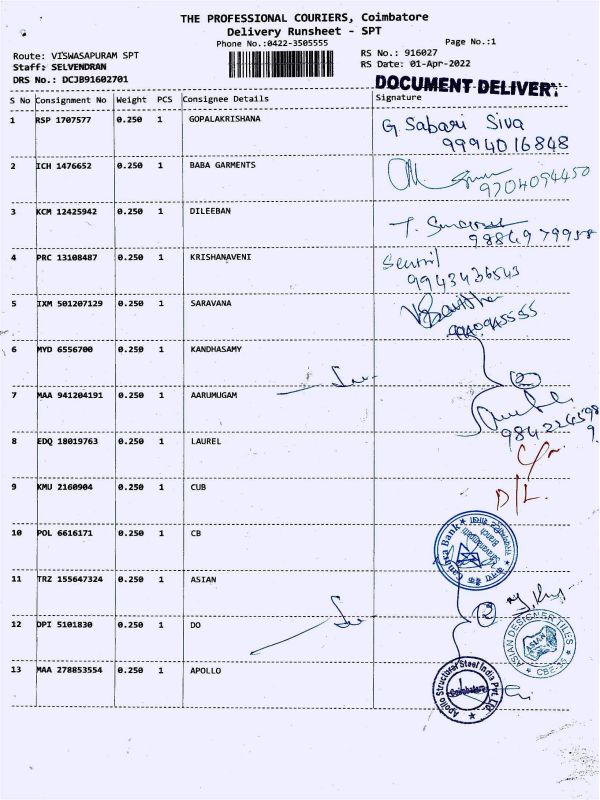 THE PROFESSIONAL COURIERS, Coimbatore
Delivery Runsheet - SPT
Phone No.:0422-3505555
Page No.:1
Route: VISWASAPURAM SPT
RS No.: 916027
Staff: SELVENDRAN
RS Date: 01-Apr-2022
DRS No.: DCJB91602701
DOCUMENT DELIVERY
S No Consignment No Weight PCS Consignee Details Signature
1 RSP 1707577 0.250 1 GOPALAKRISHANA G. Sabari Siva
9994016848
2 ICH 1476652 0.250 1 BABA GARMENTS
9704094450
3 KCM 12425942 0.250 1 DILEEBAN
4 PRC 13108487 0.250 1 KRISHANAVENI
9943436543
5 IXM 501207129 0.250 1 SARAVANA
6 MYD 6556700 0.250 1 KANDHASAMY
2
7 MAA 941204191 0.250 1 AARUMUGAM
8 EDQ 18019763 0.250 1 LAUREL
9 KMU 2160904 0.250 1 CUB
D/L.
10 POL 6616171 0.250 1 CB
Canara Bank
11 TRZ 155647324 0.250 1 ASIAN
12 DPI 5101830 0.250 1 DO
2
ASIAN DESIGNER TILES
ASIAN
13 MAA 278853554 0.250 1 APOLLO
Apollo Structural Steel India Pvt. Ltd.
Coimbatore